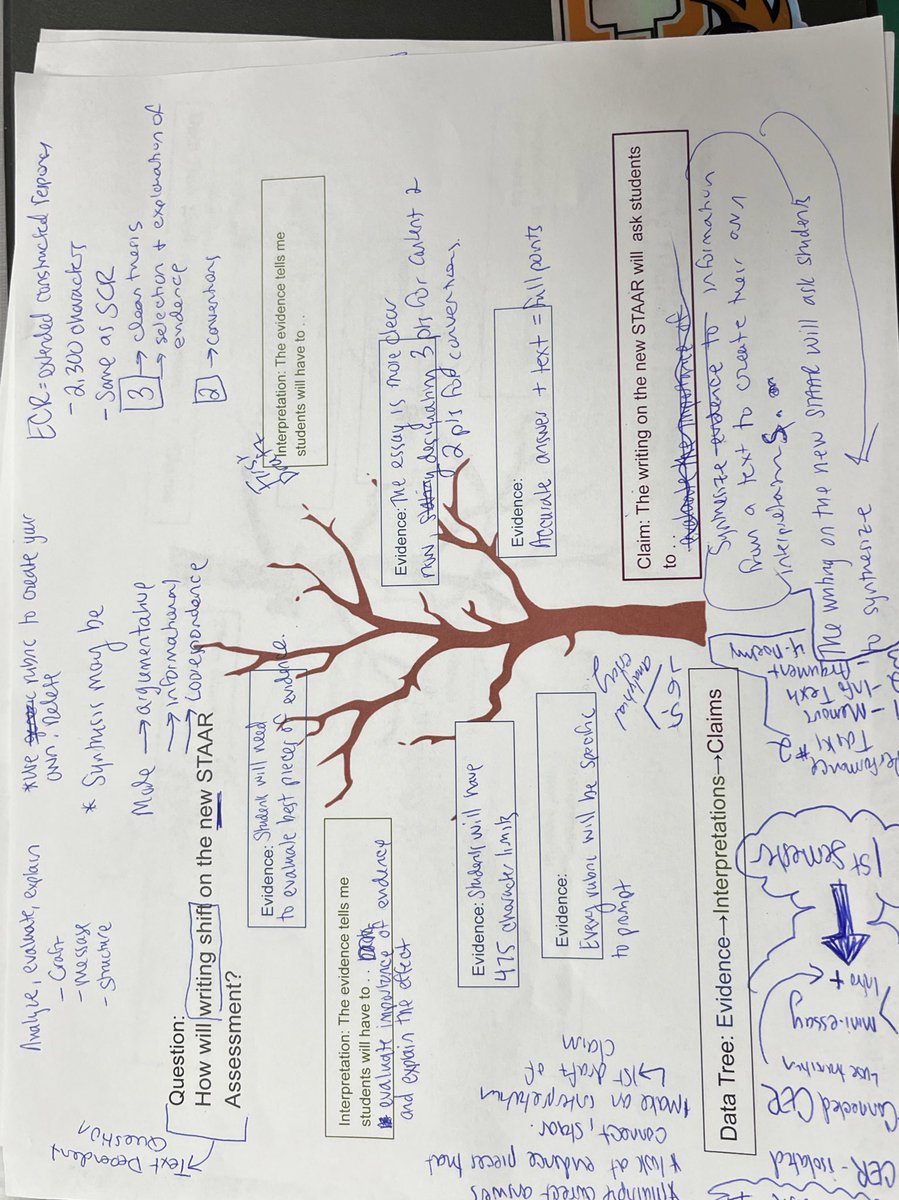 Analyze, evaluate, explain
- Craft
- message
- structure
*use rubric to create your
own, delete
* Synthesis may be
Mode → argumentative
→ informational
→ correspondence
ECR = extended constructed response
- 2,300 characters
- Same as SCR
3 → clear thesis
→ selection + explanation of
evidence
2 → conventions
→ Text Dependent
Question
Question:
How will writing shift on the new STAAR
Assessment?
Evidence: Student will need
to evaluate best pieces of evidence.
Interpretation: The evidence tells me
students will have to...
Interpretation: The evidence tells me
students will have to...
evaluate importance of evidence
and explain the effect
Evidence: The essay is more clear
now, designating 3 pts for content 2
2 pts for conventions.
Evidence: Students will have
475 character limits
Evidence:
Accurate answer + text = full points
Evidence:
Every rubric will be specific
to prompt
*look at evidence pieces that
connect, staar.
*Make an interpretation
↳ 1st draft of
claim
Claim: The writing on the new STAAR will ask students
to...
Synthesize evidence to information
from a text to create their own
interpretations
The writing on the new STAAR will ask students
to synthesize
Data Tree: Evidence→Interpretations→Claims
Performance
Task
#2
- Memoir
- Info Text
- Argument
4. Poetry
1st semester
Intro +
mini-essay
Connected CER
↳ use transition
CER - isolated